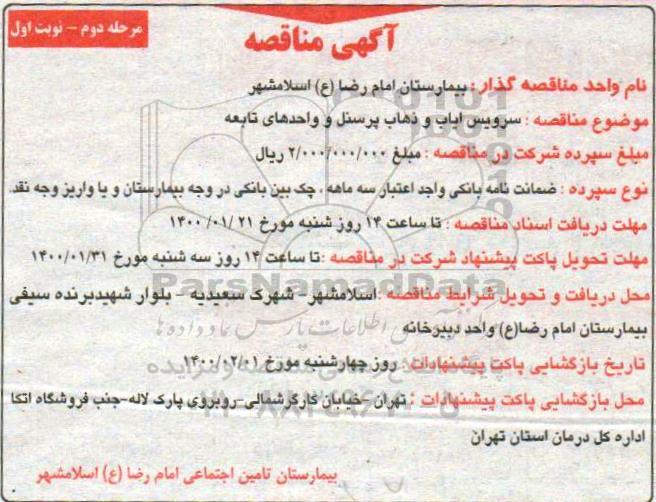 مرحله دوم - نوبت اول
آگهی مناقصه
نام واحد مناقصه گذار : بیمارستان امام رضا (ع) اسلامشهر
موضوع مناقصه : سرویس ایاب و ذهاب پرسنل و واحدهای تابعه
مبلغ سپرده شرکت در مناقصه : مبلغ ۲/۰۰۰/۰۰۰/۰۰۰ ریال
نوع سپرده : ضمانت نامه بانکی واجد اعتبار سه ماهه ، چک بین بانکی در وجه بیمارستان و یا واریز وجه نقد.
مهلت دریافت اسناد مناقصه : تا ساعت ۱۴ روز شنبه مورخ ۱۴۰۰/۰۱/۲۱
مهلت تحویل پاکت پیشنهاد شرکت در مناقصه :تا ساعت ۱۴ روز سه شنبه مورخ ۱۴۰۰/۰۱/۳۱
محل دریافت و تحویل شرایط مناقصه :اسلامشهر- شهرک سعیدیه - بلوار شهیدبرنده سیفی
بیمارستان امام رضا(ع) واحد دبیرخانه
تاریخ بازگشایی پاکت پیشنهادات : روز چهارشنبه مورخ ۱۴۰۰/۰۲/۰۱
محل بازگشایی پاکت پیشنهادات : تهران -خیابان کارگرشمالی-روبروی پارک لاله-جنب فروشگاه اتکا
اداره کل درمان استان تهران
بیمارستان تامین اجتماعی امام رضا (ع) اسلامشهر
ParsNamadData